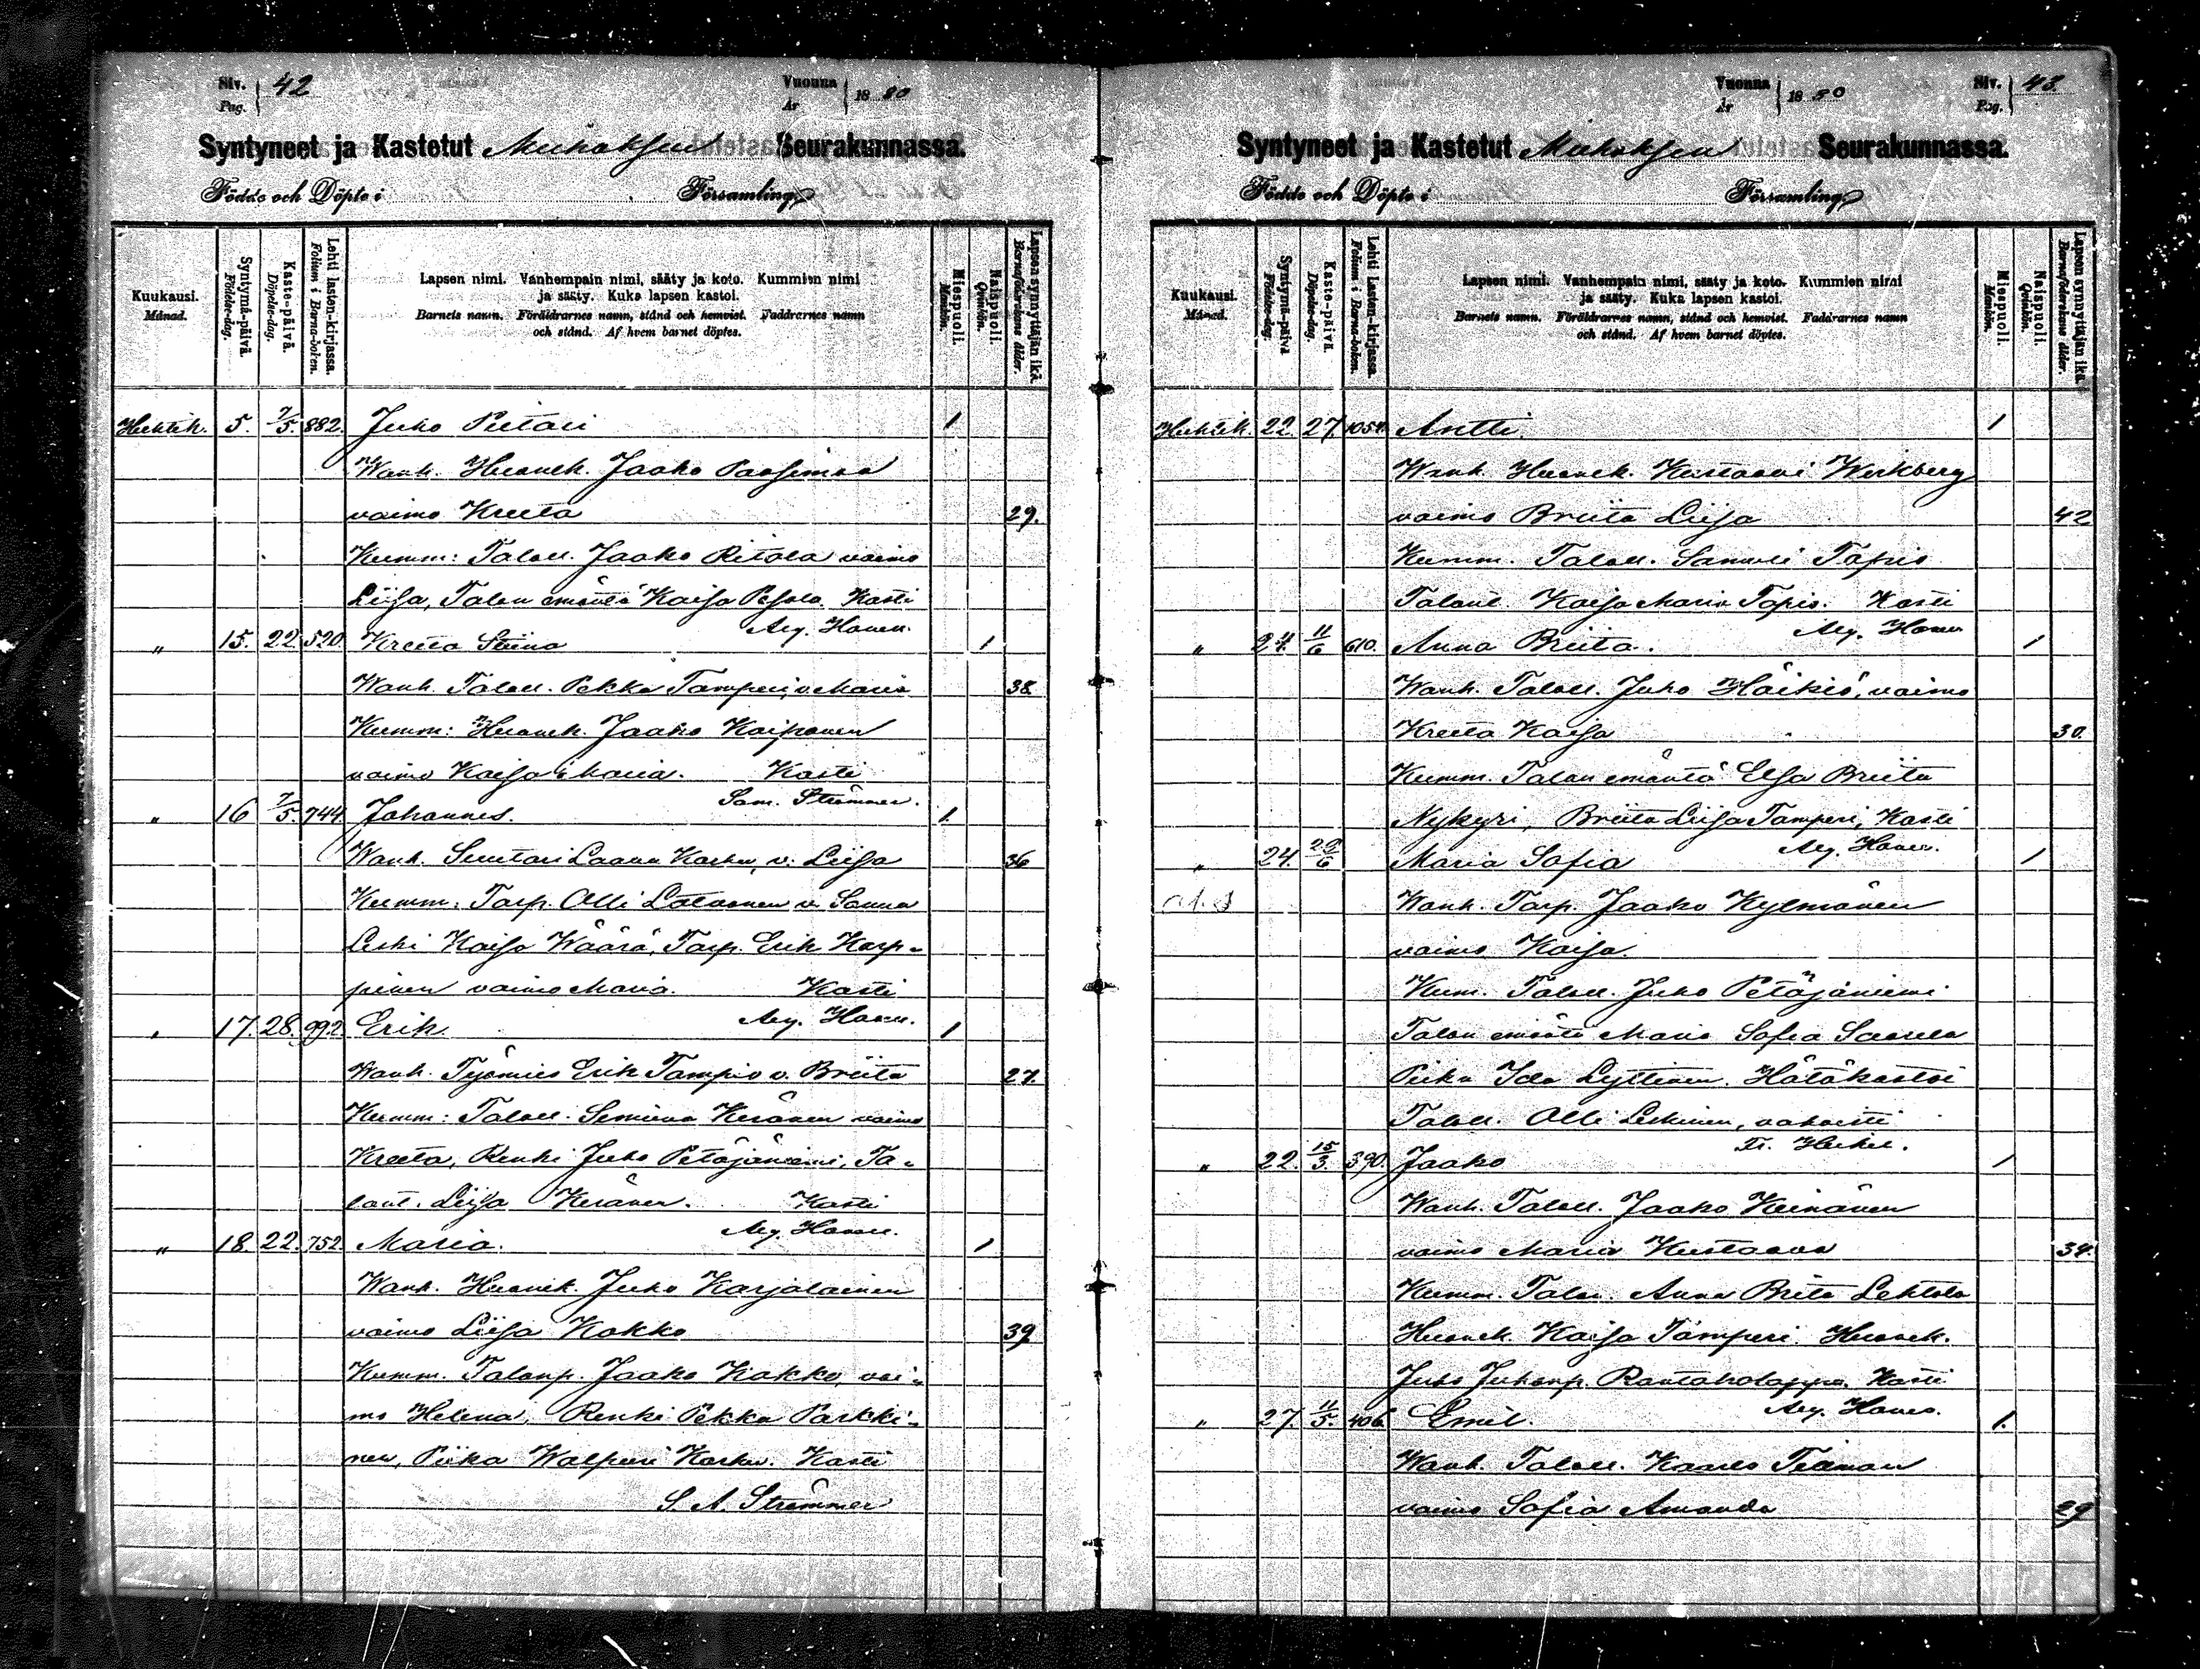 Siv. 42 Vuonna 1880
Pag. År
Syntyneet ja Kastetut Muhoksen Seurakunnassa.
Födde och Döpte i Församling
Kuukausi. Månad.
Syntymä-päivä. Födelse-dag.
Kaste-päivä. Döpelse-dag.
Lehti lasten-kirjassa. Folium i Barna-boken.
Lapsen nimi. Vanhempain nimi, sääty ja koto. Kummien nimi
ja sääty. Kuka lapsen kastoi.
Barnets namn. Föräldrarnes namn, stånd och hemvist. Faddrarnes namn
och stånd. Af hvem barnet döptes.
Miespuoli. Mankön.
Naispuoli. Qvinkön.
Lapsen synnyttäjän ikä. Barnaföderskans ålder.
Huhtik. 5. 7/5. 882. Juho Pietari 1
Wanh. Huonek. Jaako
vaimo Kreeta 29.
Kumm: Taloll. Jaako Ritola vaimo
Liisa, Talon emäntä Kaisa Pesola. Kasti
Arv. Haven.
" 15. 22. 520. Kreeta Stiina 1
Wanh. Taloll. Pekka Tamperi, v. Maria 38
Kumm: Huonek. Jaako Kaiponen
vaimo Kaisa Maria. Kasti
Sam. Strömmer.
" 16 7/5. 744. Johannes. 1.
Wanh. Suutari Karhu, v. Liisa 36
Kumm: Torp. Olli Latvanen v. Sanna
Leski Kaisa Wäärä, Torp. Erik Karp-
pinen vaimo Maria. Kasti
" 17. 28. 992. Erik. 1
Wanh. Työmies Erik Tampio v. Briita 27.
Kumm: Taloll. Keränen vaimo
Kreeta, Renki Juho Petäjäniemi, Ta-
lont. Liisa Keränen. Kasti
" 18. 22. 752. Maria. 1
Wanh. Huonek. Juho Karjalainen
vaimo Liisa Kokko 39
Kumm. Talonp. Jaako Kokko, vai-
mo Helena, Renki Pekka Parkki-
nen, Piika Walpuri Karhu. Kasti
S. A. Strömmer
Vuonna 1880 Siv. 43.
År Pag.
Syntyneet ja Kastetut Muhoksen Seurakunnassa.
Födde och Döpte i Församling
Kuukausi. Månad.
Syntymä-päivä Födelse-dag.
Kaste-päivä. Döpelse-dag.
Lehti Lasten-kirjassa. Folium i Barna-boken.
Lapsen nimi. Vanhempain nimi, sääty ja koto. Kummien nimi
ja sääty. Kuka lapsen kastoi.
Barnets namn. Föräldrarnes namn, stånd och hemvist. Faddrarnes namn
och stånd. Af hvem barnet döptes.
Miespuoli. Mankön.
Naispuoli. Qvinkön.
Lapsen synnyttäjän ikä. Barnaföderskans ålder.
Huhtik. 22. 27. Antti. 1
Wanh. Huonek. Kustaavi Werkberg
vaimo Briita Liisa 42
Kumm. Taloll. Samuli Tapio
Talont. Kaisa Maria Tapio. Kasti
" 24. 11/6 610. Anna Briita. 1
Wanh. Taloll. Juho Häikiö, vaimo
Kreeta Kaisa 30.
Kumm. Talon emäntä Elsa Briita
Nykyri, Briita Liisa Tamperi, Kasti
" 24. 29/6 Maria Sofia 1
Wanh. Torp. Jaako Kylmänen
vaimo Kaisa.
Kum. Taloll. Juho Petäjäniemi
Talon emäntä Maria Sofia Saarela
Piika Ida Lyttinen. Hätäkastoi
Taloll. Olli Leskinen, vahvisti
Fr. Heikel.
" 22. 15/3. 390. Jaako 1
Wanh. Taloll. Jaako Keinänen
vaimo Maria Kustaava 34.
Kumm. Talon. Anna Brita Lehtola
Huonek. Kaisa Tamperi. Huonek.
Juho Juhonp. Rantaholappa. Kasti
" 27. 11/5. 406. Emil. 1.
Wanh. Taloll. Kaarlo
vaimo Sofia Amanda 29